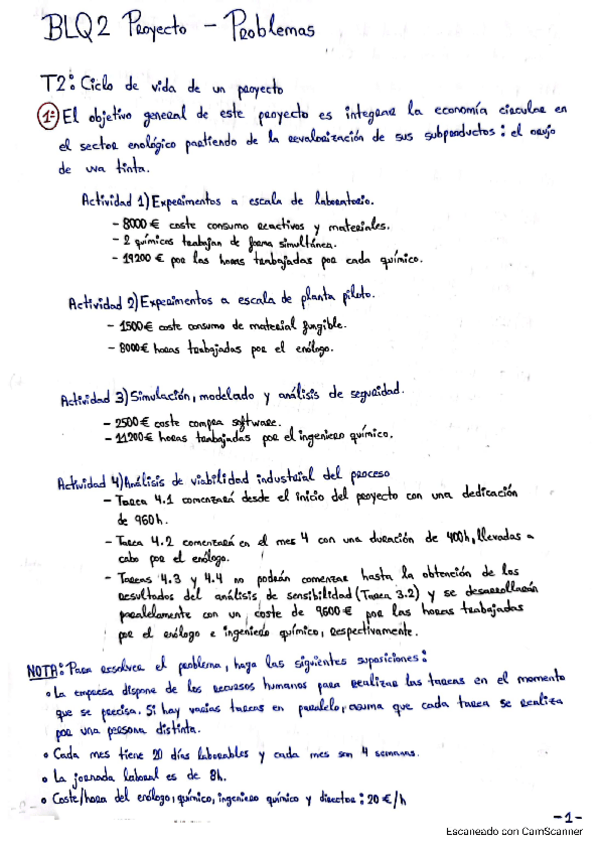 BLQ2 Proyecto - Problemas
T2: Ciclo de vida de un proyecto
1º El objetivo general de este proyecto es integrar la economía circular en
el sector enológico partiendo de la revalorización de sus subproductos: el orujo
de uva tinta.
Actividad 1) Experimentos a escala de laboratorio.
- 8000 € coste consumo reactivos y materiales.
- 2 químicos trabajan de forma simultánea.
- 19200 € por las horas trabajadas por cada químico.
Actividad 2) Experimentos a escala de planta piloto.
- 1500€ coste consumo de material fungible.
- 8000€ horas trabajadas por el enólogo.
Actividad 3) Simulación, modelado y análisis de seguridad.
- 2500€ coste compra software.
- 11200€ horas trabajadas por el ingeniero químico.
Actividad 4) Análisis de viabilidad industrial del proceso
- Tarea 4.1 comenzará desde el inicio del proyecto con una dedicación
de 960h.
- Tarea 4.2 comenzará en el mes 4 con una duración de 400h, llevadas a
cabo por el enólogo.
- Tareas 4.3 y 4.4 no podrán comenzar hasta la obtención de los
resultados del análisis de sensibilidad (Tarea 3.2) y se desarrollarán
paralelamente con un coste de 9600€ por las horas trabajadas
por el enólogo e ingeniero químico, respectivamente.
NOTA: Para resolver el problema, haga las siguientes suposiciones:
• La empresa dispone de los recursos humanos para realizar las tareas en el momento
que se precisa. Si hay varias tareas en paralelo, asuma que cada tarea se realiza
por una persona distinta.
• Cada mes tiene 20 días laborables y cada mes son 4 semanas.
• La jornada laboral es de 8h.
• Coste/hora del enólogo, químico, ingeniero químico y director: 20 €/h
-1-
Escaneado con CamScanner